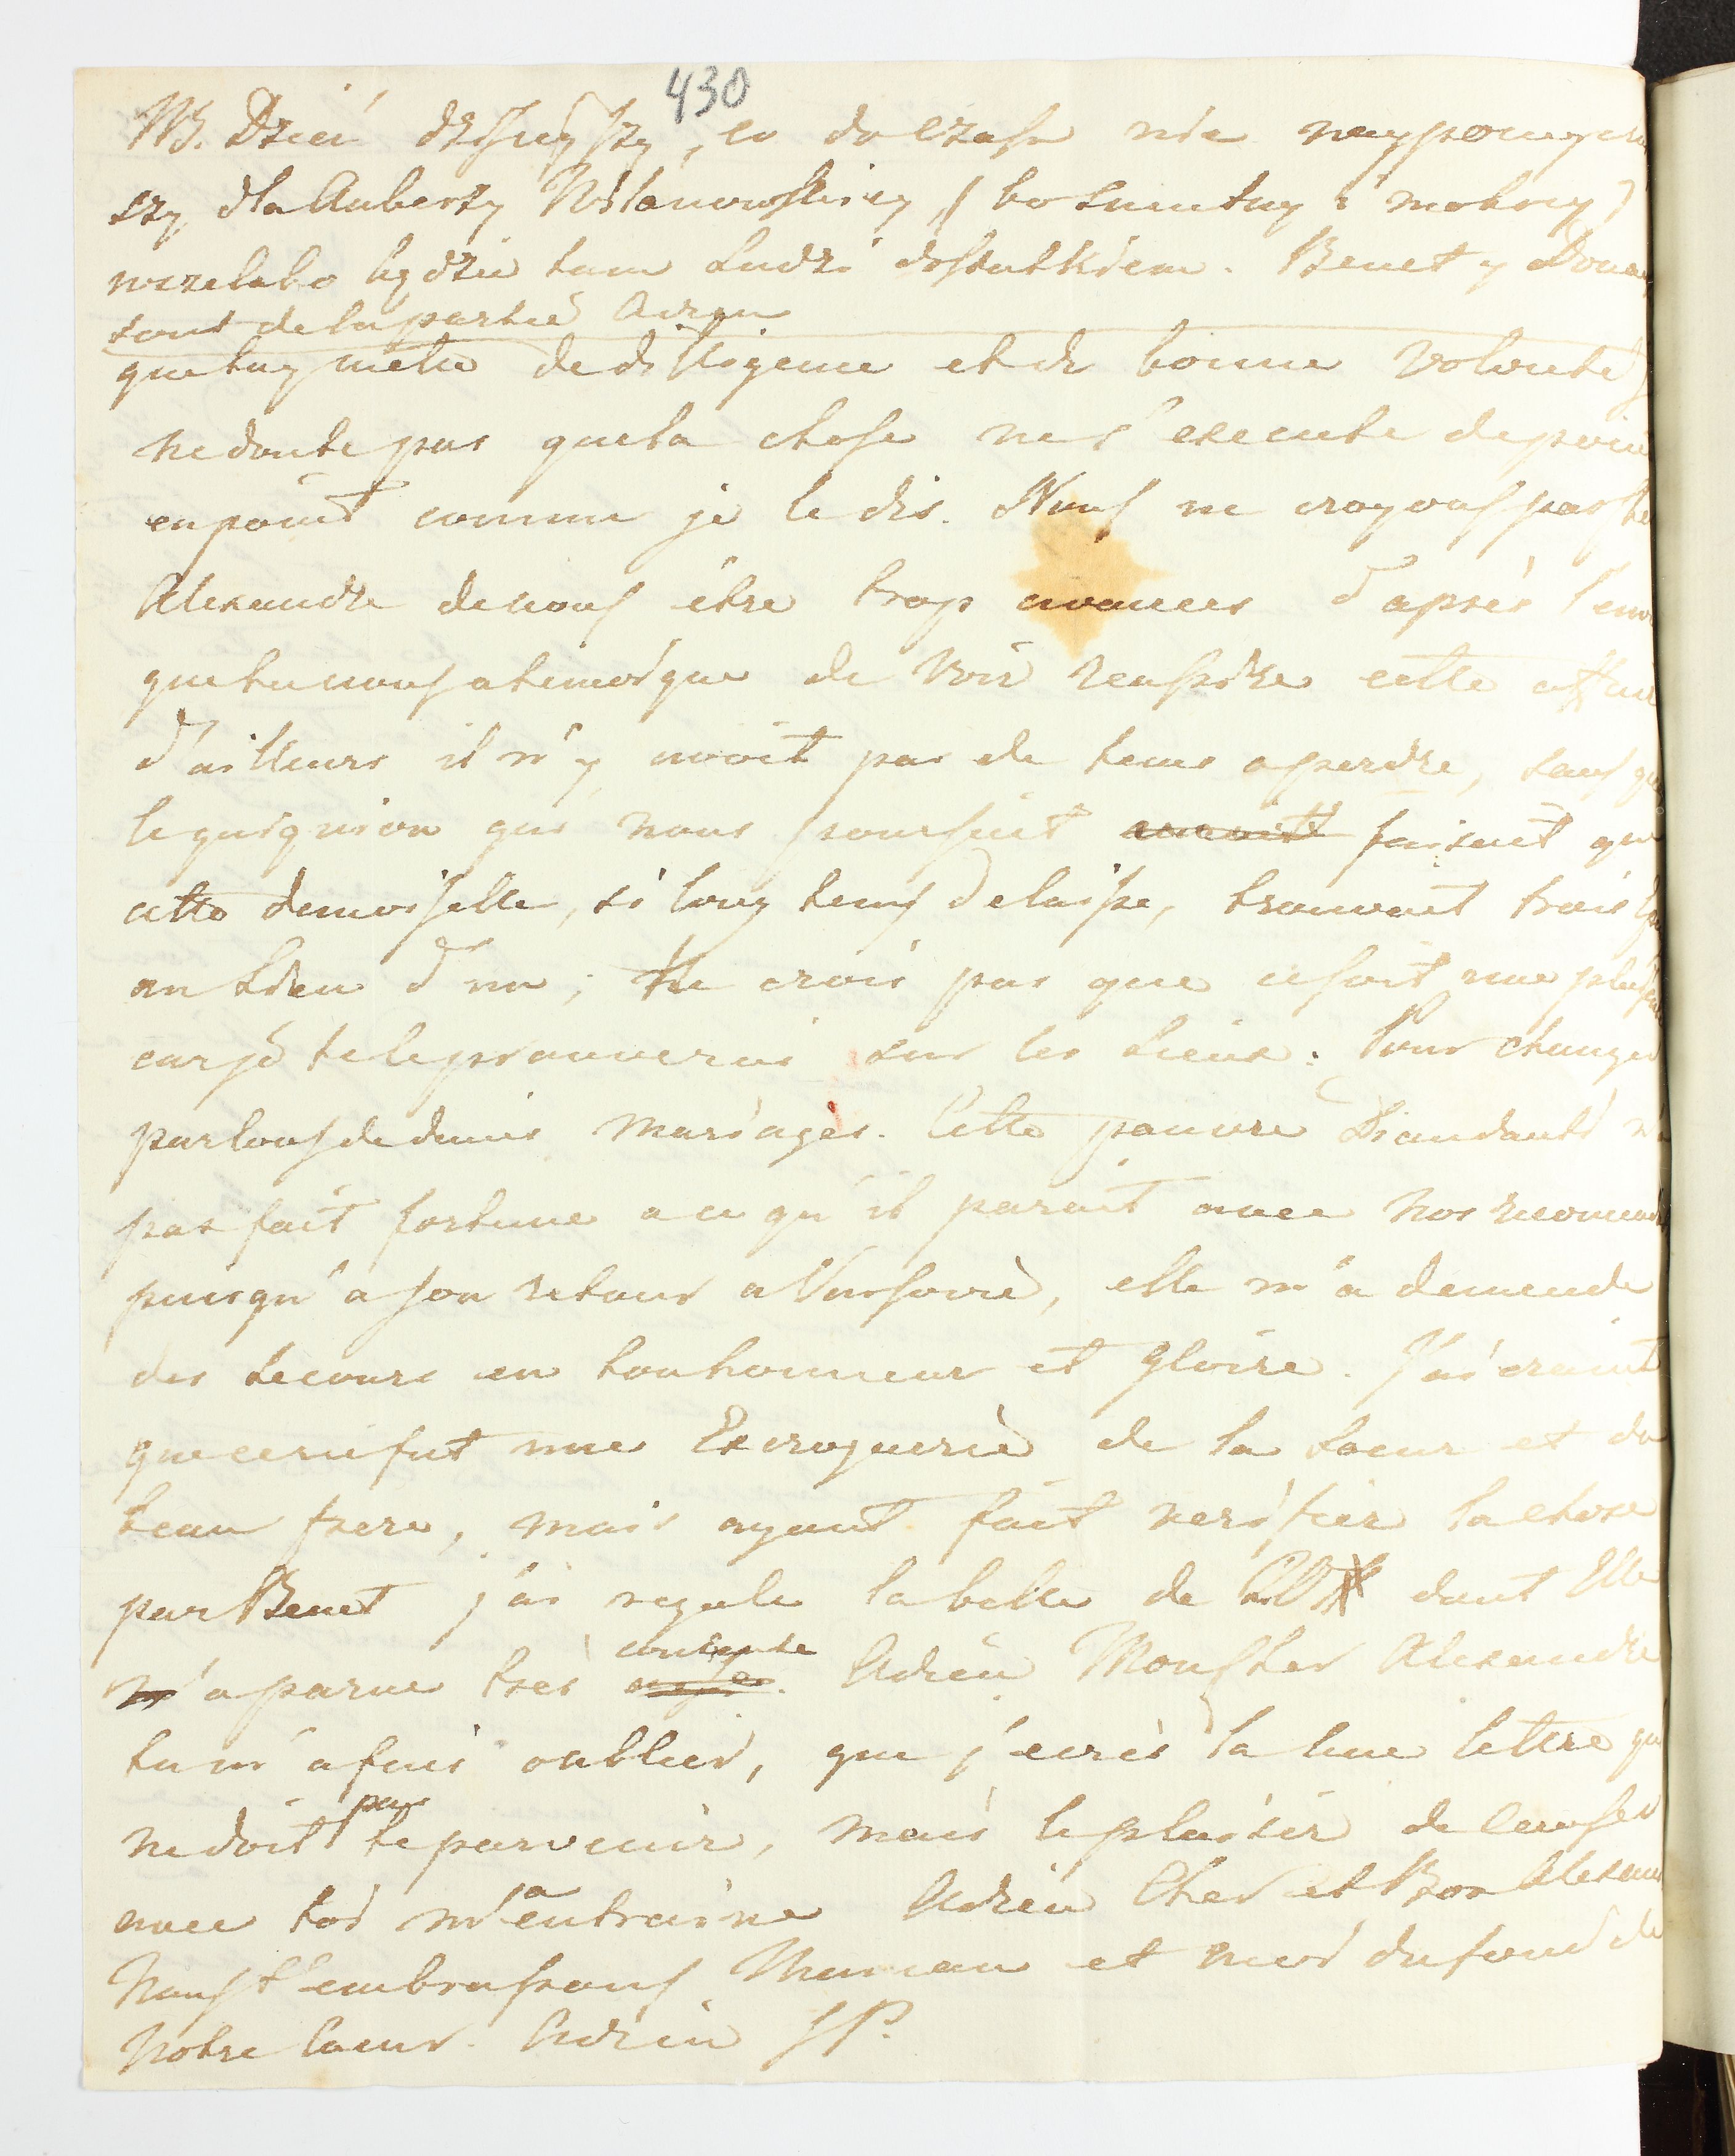 430
NB. Dzień dzisieyszy, co do czasu nie naypomyśln
szy dla Auberży Wilanowskiey, (bo smutny i mokry)
wszelako będzie tam Ludzi dostatkiem. Benet y
sont de la partie Adieu
que tu y mette de dilligence et de bonne volonté
ne doute pas que la chose ne s'execute de poin
en point comme je le dis. Nous ne croyons pas
Alexandre de nous être trop avancés d'après l'env
que tu nous a temoigne de voir reussire cette affaire
d'ailleurs il n'y avoit pas de tems a perdre, sans
le guignion qui nous poursuit faisait que
cette demoiselle, si long tems delaisse, trouvait trois
au Lieu d'un; Ne crois pas que ce soit une
car je te le prouverai sur les Lieux. Pour changer
parlons de mariages. Cette pauvre n'a
pas fait fortune a ce qu'il parait avec nos
puisqu'a son retour a Varsovie, elle m'a demende
des secours en tout honneur et gloire. J'ai craint
que ce ne fut une Escroquerie de la Soeur et du
beau frere, mais ayant fait verifier la chose
par Benet j'ai regale la belle de dont Elle
m'a parue très contente. Adieu Alexandre
tu m'a fais oublier, que j'ecris la lettre qui
ne doit pas te parvenir, mais le plaisir de causer
avec toi m'a entrainé Adieu Cher et Bon Alexan
Nous t'embrassons Maman et moi du fond de
Notre Coeur. Adieu SP.